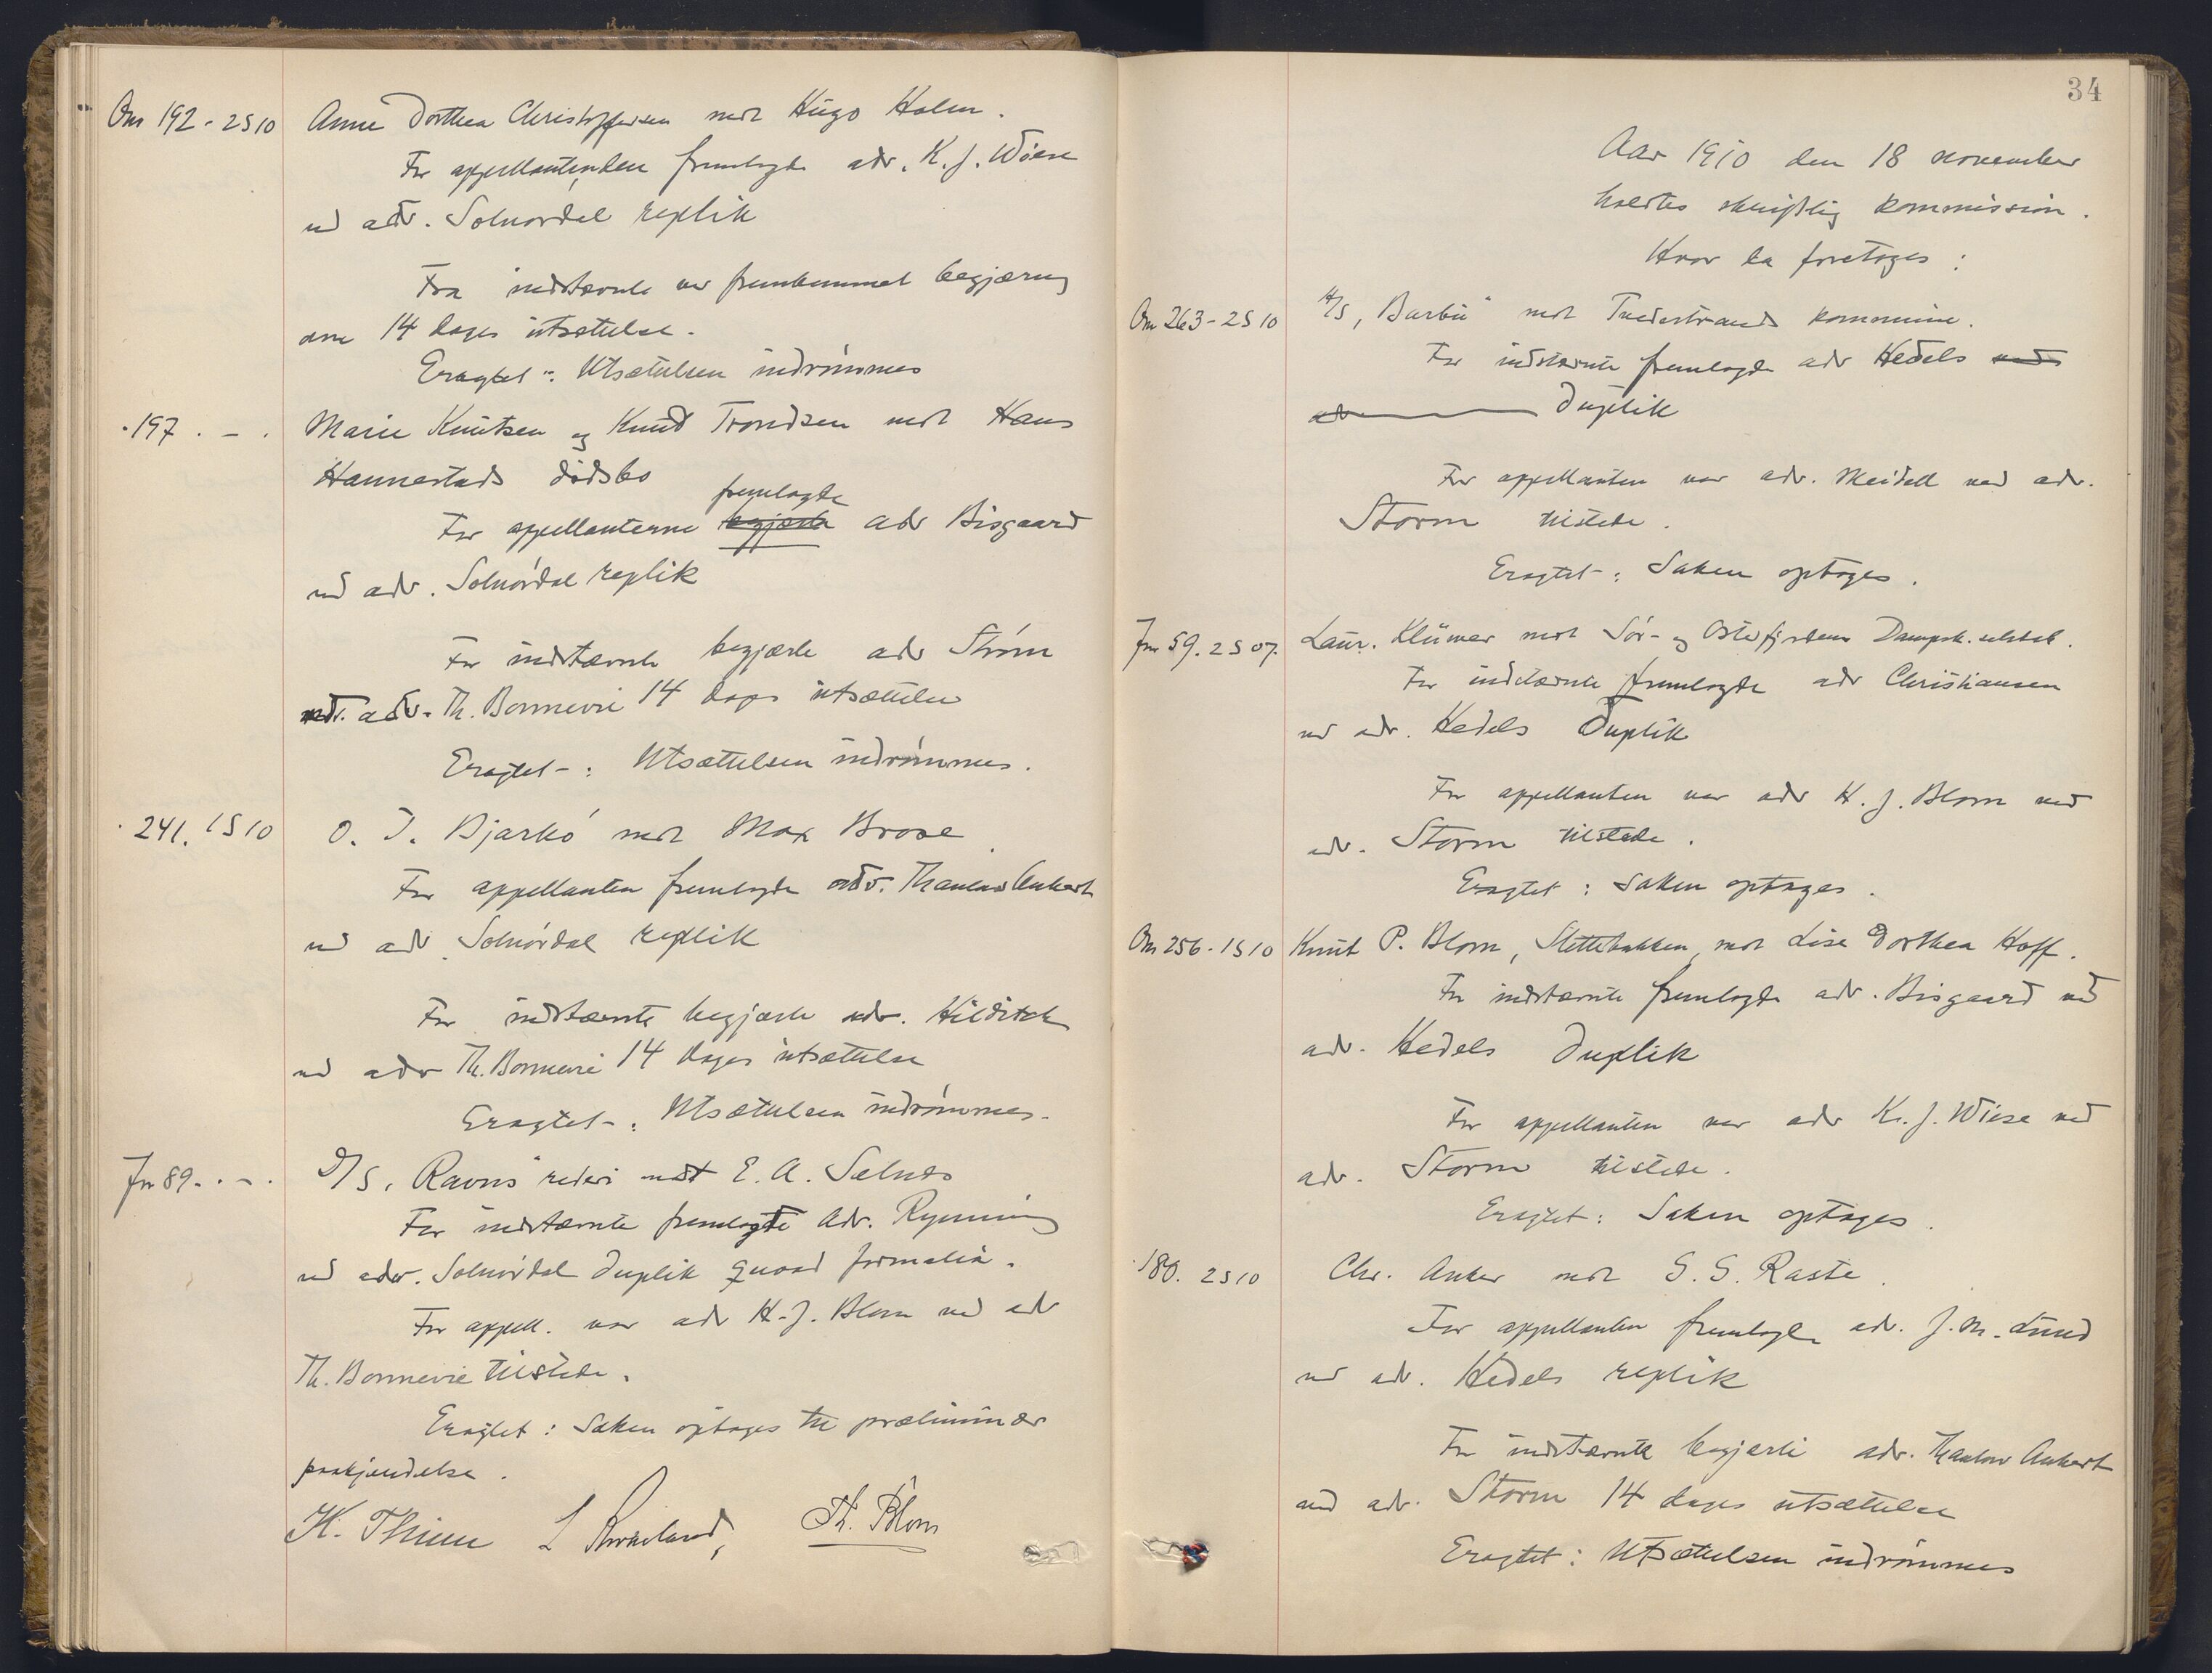 Om 192 - 2S10 Anne Dorthea Christoffersen mot Hugo Holm.
For appellantinden fremlagde adv. K. J. Wiese
ved adv. Solnørdal replik
Fra indstævnte var fremkommet begjæring
om 14 dages utsættelse.
Eragtet: Utsættelsen indrømmes
" 197 . — . Marie Knutsen og Knud Trondsen mot Hans
Hannestads dødsbo
fremlagde
For appellanterne begjærte adv Bisgaard
ved adv. Solnørdal replik
For indstævnte begjærte adv Strøm
ved adv. Th. Bonnevie 14 dages utsættelse
Eragtet: Utsættelsen indrømmes.
" 241. 1S10 O. J. Bjarkø mot Max Brose.
For appellanten fremlagde adv. Thaulow Ankert
ved adv. Solnørdal replik
For indstævnte begjærte adv. Hilditch
ved adv Th. Bonnevie 14 dages utsættelse
Eragtet: Utsættelsen indrømmes.
Jnr 89. . — . D/S. "Ravns" rederi mot E. A. Selnes
For indstævnte fremlagde Adv. Rynning
ved adv. Solnørdal duplik quoad formalia.
For appell. var adv H. J. Blom ved adv
Th. Bonnevie tilstede.
Eragtet: Saken optages til præliminær
paakjendelse.
K. Thime L Birkeland, Th. Blom
34
Aar 1910 den 18 november
holdtes skriftlig kommission.
Hvor da foretoges:
Om 263 - 2S10 A/S, "Barbu" mot Tvedestrands kommune.
For indstævnte fremlagde adv Hedels ved
adv duplik
For appellanten var adv. Meidell ved adv.
Storm tilstede.
Eragtet: Saken optages.
Jnr 59. 2S07. Laur. Klüwer mot Sør- og Østefjordens Dampsk. selskab.
For indstævnte fremlagde adv Christiansen
ved adv. Hedels Duplik
For appellanten var adv H. J. Blom ved
adv. Storm tilstede.
Eragtet: Saken optages.
Om 256 - 1S10 Knut P. Blom, Slettebakken, mot Lise Dorthea Hoff.
For indstævnte fremlagde adv. Bisgaard ved
adv. Hedels Duplik
For appellanten var adv K. J. Wiese ved
adv. Storm tilstede.
Eragtet: Saken optages.
" 180. 2S10 Chr. Anker mot S. S. Raste.
For appellanten fremlagde adv. J. M. Lund
ved adv. Hedels replik
For indstævnte begjærte adv. Thaulow Ankert
ved adv. Storm 14 dages utsættelse
Eragtet: Utsættelsen indrømmes